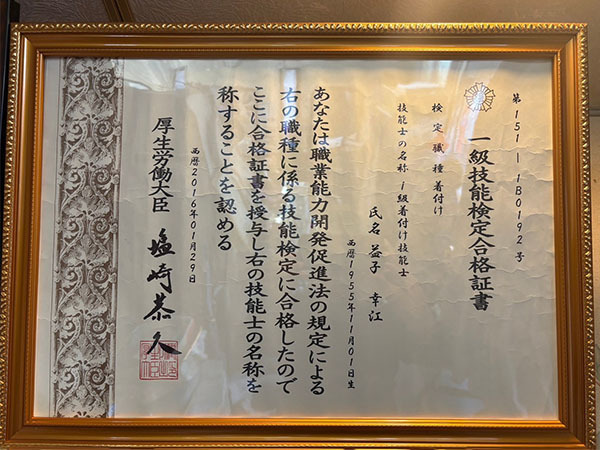 第151－1B0192号
一級技能検定合格証書
検定職種 着付け
技能士の名称 1級着付け技能士
氏名 益子 幸江
西暦1955年11月01日生
あなたは職業能力開発促進法の規定による
右の職種に係る技能検定に合格したので
ここに合格証書を授与し右の技能士の名称を
称することを認める
西暦2016年01月29日
厚生労働大臣 塩崎恭久